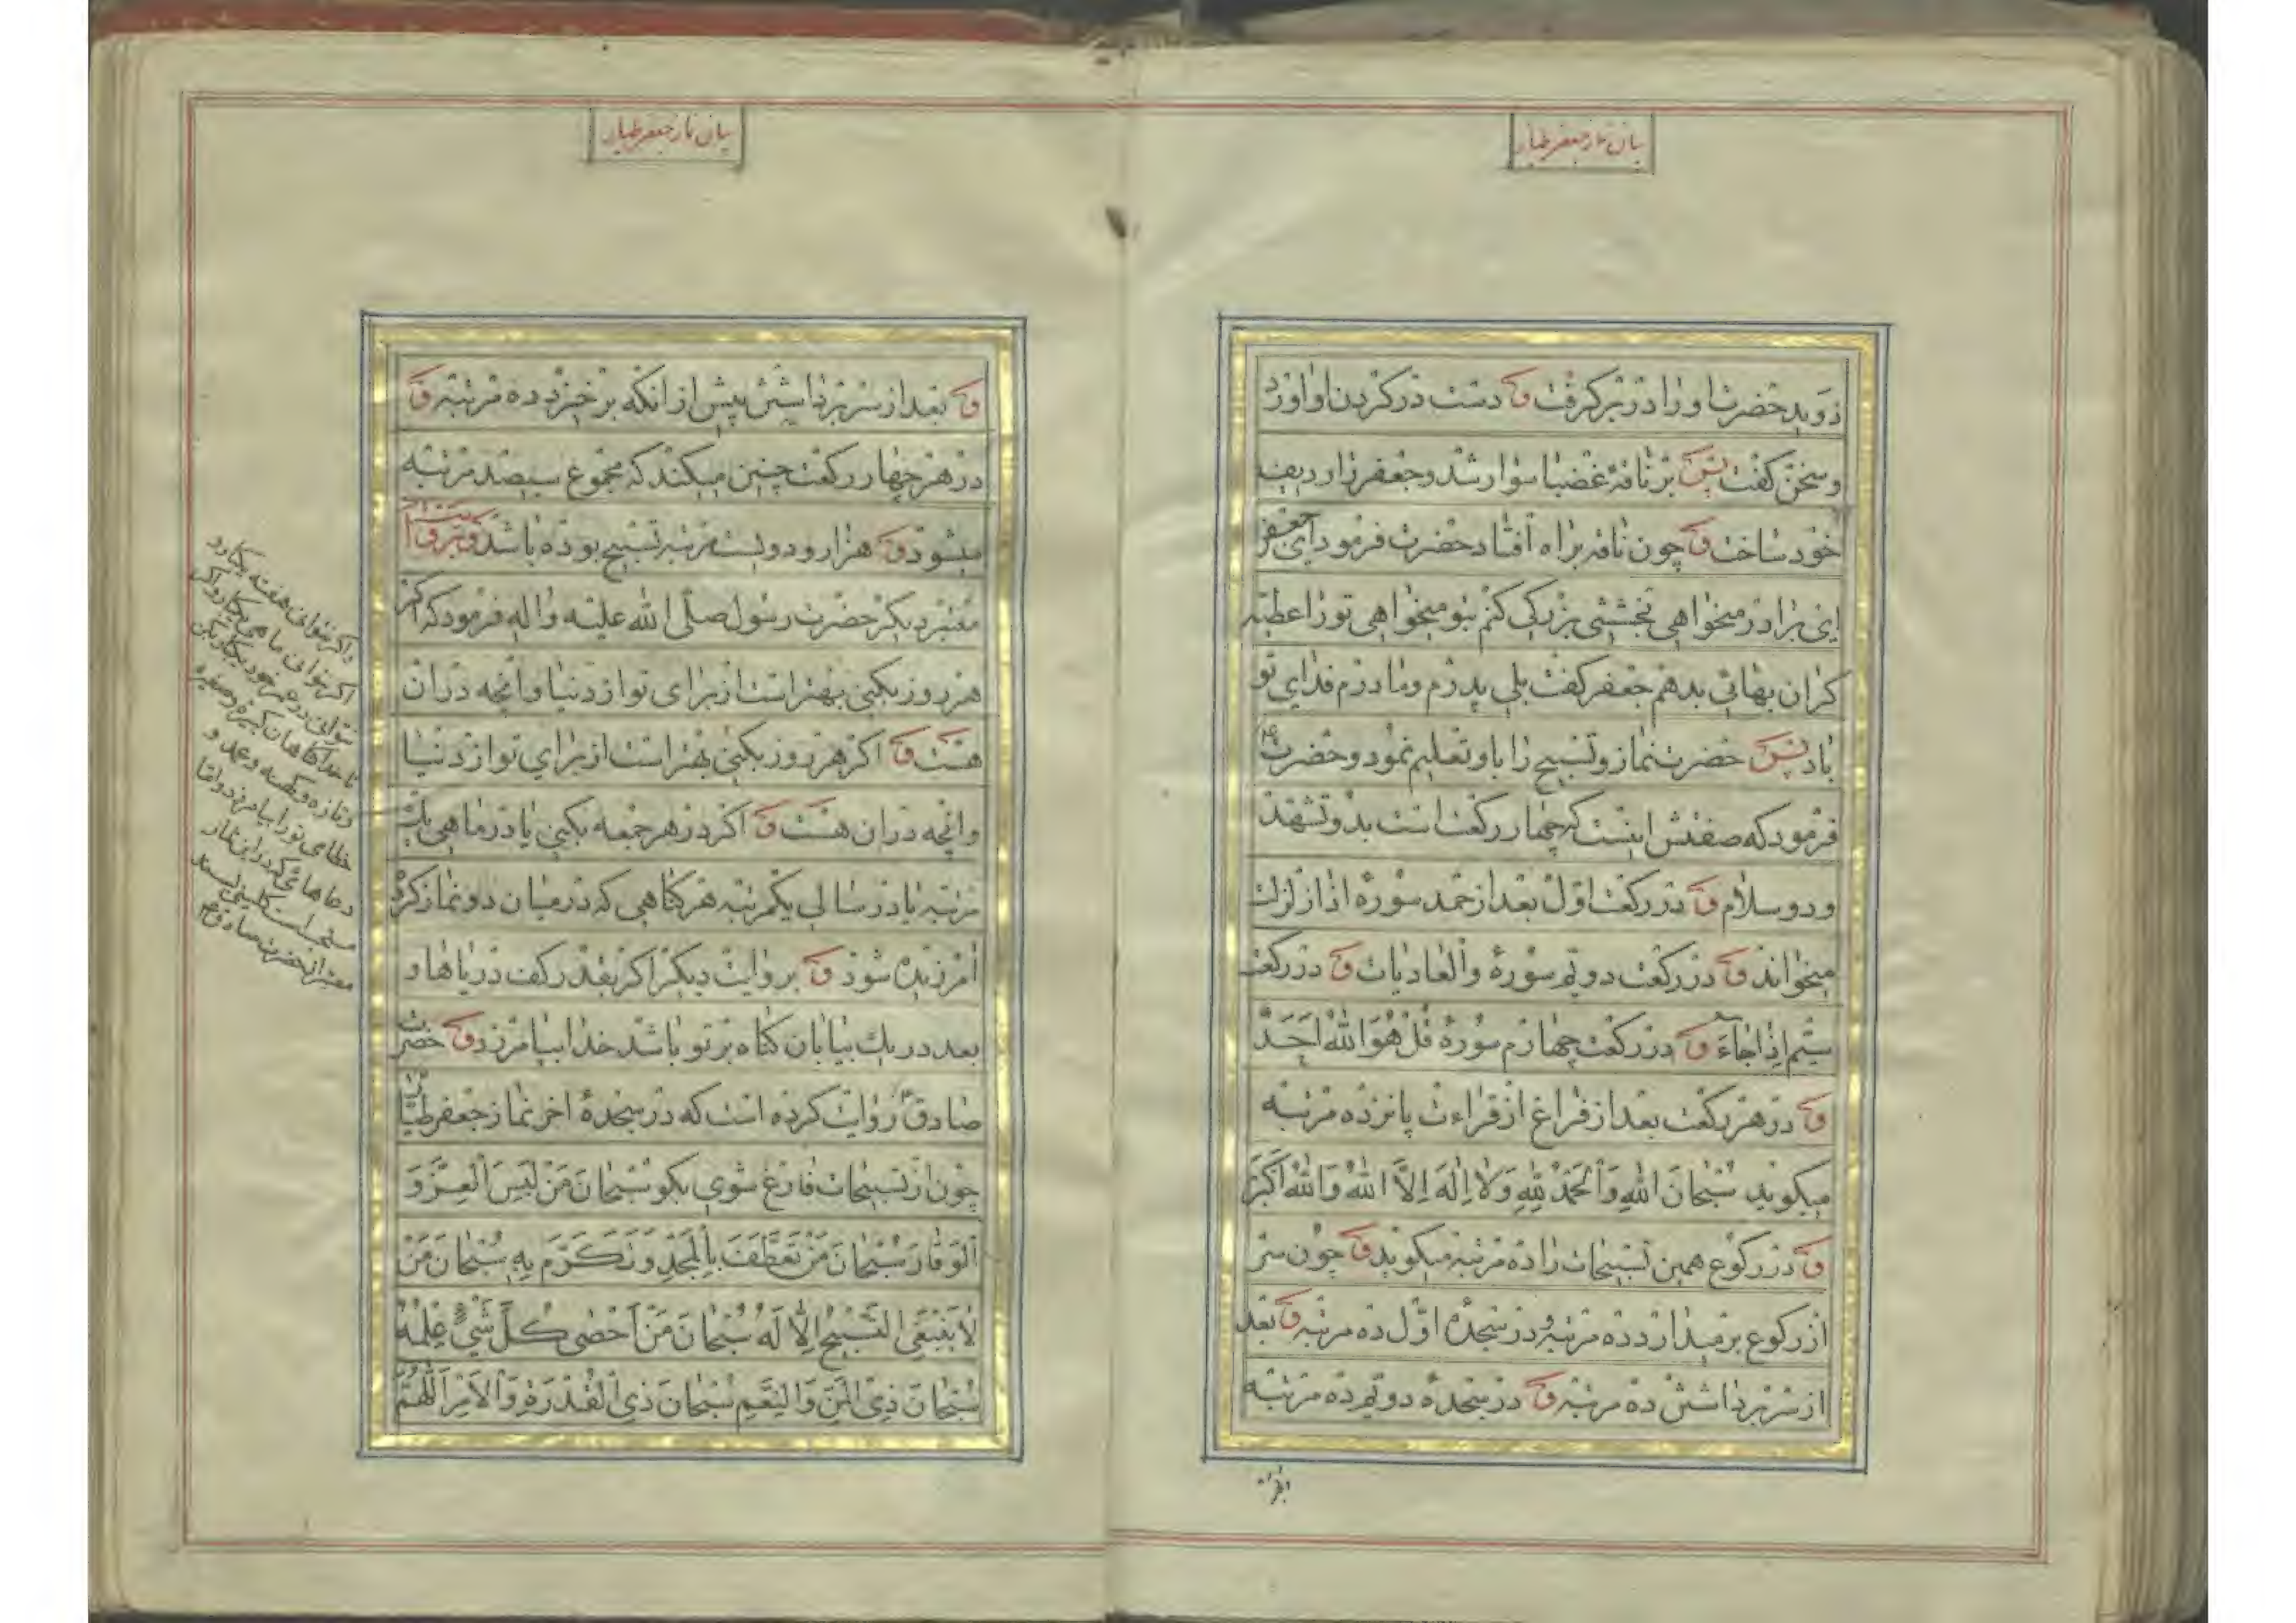 بیان نماز جعفر طیار
دوید حضرت او را در بر گرفت و دست در گردن او آورد
و سخن گفت پس بر ناقه غضبا سوار شد و جعفر را ردیف
خود ساخت و چون ناقه براه افتاد حضرت فرمود ای جعفر
ای برادر میخواهی بخششی بزرگی کنم بتو میخواهی تو را عطیّه
کران بهائی بدهم جعفر کفت بلی پدرم و مادرم فدای تو
باد پس حضرت نماز و تسبیح را باو تعلیم نمود و حضرت
فرمود که صفتش اینست که چهار رکعت است بدو تشهّد
و دو سلام و در رکعت اوّل بعد از حمد سورهٔ اذا زلزلت
میخواند و در رکعت دویّم سورهٔ والعادیات و در رکعت
سیّم اِذا جاءَ و در رکعت چهارم سورهٔ قُلْ هُوَ اللهُ اَحَدٌ
و در هر رکعت بعد از فراغ از قراءت پانزده مرتبه
میکوید سُبْحانَ اللهِ وَالْحَمْدُ لِلّهِ وَلا اِلهَ اِلَّا اللهُ وَاللهُ اَکْبَرُ
و در رکوع همین تسبیحات را ده مرتبه میکوید و چون سر
از رکوع بر میدارد ده مرتبه و در سجدهٔ اوّل ده مرتبه و بعد
از سر برداشتن ده مرتبه و در سجدهٔ دویّم ده مرتبه
بیان نماز جعفر طیار
و بعد از سر برداشتن پیش از انکه برخیزد ده مرتبه و
در هر چهار رکعت چنین میکند که مجموع سیصد مرتبه
میشود و هزار و دویست مرتبه تسبیح بوده باشد و
معتبر دیکر حضرت رسول صلّی الله علیه واله فرمود که اکر
هر روز بکنی بهتر است از برای تو از دنیا و آنچه در ان
هست و اکر هر دو روز بکنی بهتر است از برای تو از دنیا
و انچه در ان هست و اکر در هر جمعه بکنی یا در ماهی یک
مرتبه یا در سالی یکمرتبه هر کناهی که در میان دو نماز کرده
آمرزیده شود و بروایت دیکر اکر بقدر کف دریاها و
بعدد ریک بیابان کناه بر تو باشد خدا بیامرزد و حضرت
صادق روایت کرده است که در سجدهٔ اخر نماز جعفر طیّار
چون از تسبیحات فارغ شوی بکو سُبْحانَ مَنْ لَبِسَ الْعِزَّ وَ
الْوَقارَ سُبْحانَ مَنْ تَعَطَّفَ بِالْمَجْدِ وَتَکَرَّمَ بِهِ سُبْحانَ مَنْ
لا یَنْبَغِی التَّسْبیحُ اِلّا لَهُ سُبْحانَ مَنْ اَحْصی کُلَّ شَیْءٍ عِلْمُهُ
سُبْحانَ ذِی الْمَنِّ وَالنِّعَمِ سُبْحانَ ذِی الْقُدْرَةِ وَالْاَمْرِ اَللّهُمَّ
و اکر نتوانی هفته یکبار و
اکر نتوانی ماهی یکبار و اکر
نتوانی در عمر خود یکبار بکن
تا خدا کناهان کبیره و صغیره
و تازه و کهنه و عمد و
خطای تو را بیامرزد و امّا
دعاهائی که در این نماز
معتبر از حضرت صادق ع